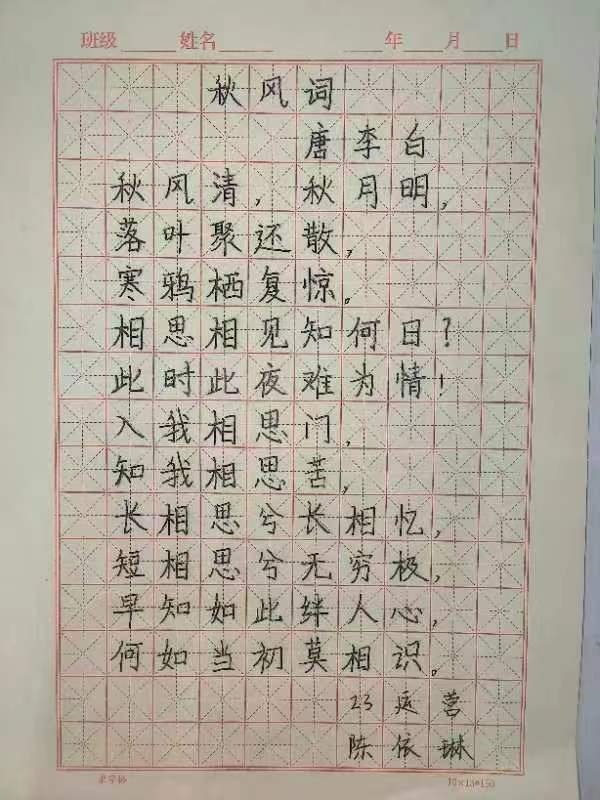 班级 姓名 年 月 日
秋风词
唐李白
秋风清，秋月明，
落叶聚还散，
寒鸦栖复惊。
相思相见知何日？
此时此夜难为情！
入我相思门，
知我相思苦，
长相思兮长相忆，
短相思兮无穷极，
早知如此绊人心，
何如当初莫相识。
23
陈依琳